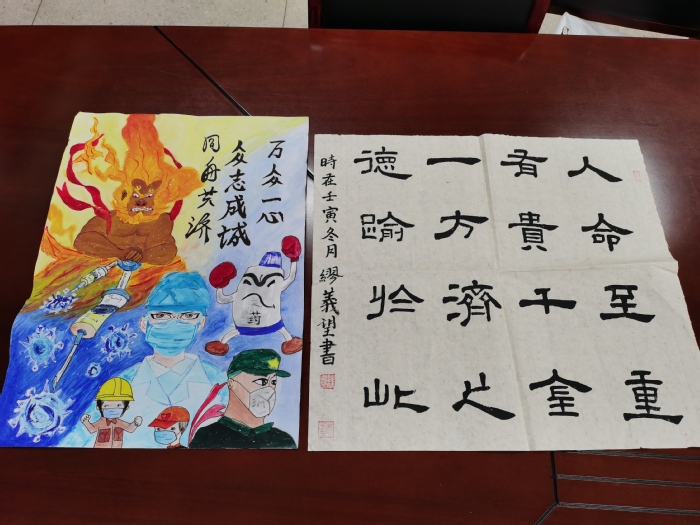 万众一心
众志成城
同舟共济
药
人命至重
有貴千金
一方濟之
德踰於此
時在壬寅冬月 繆義望書